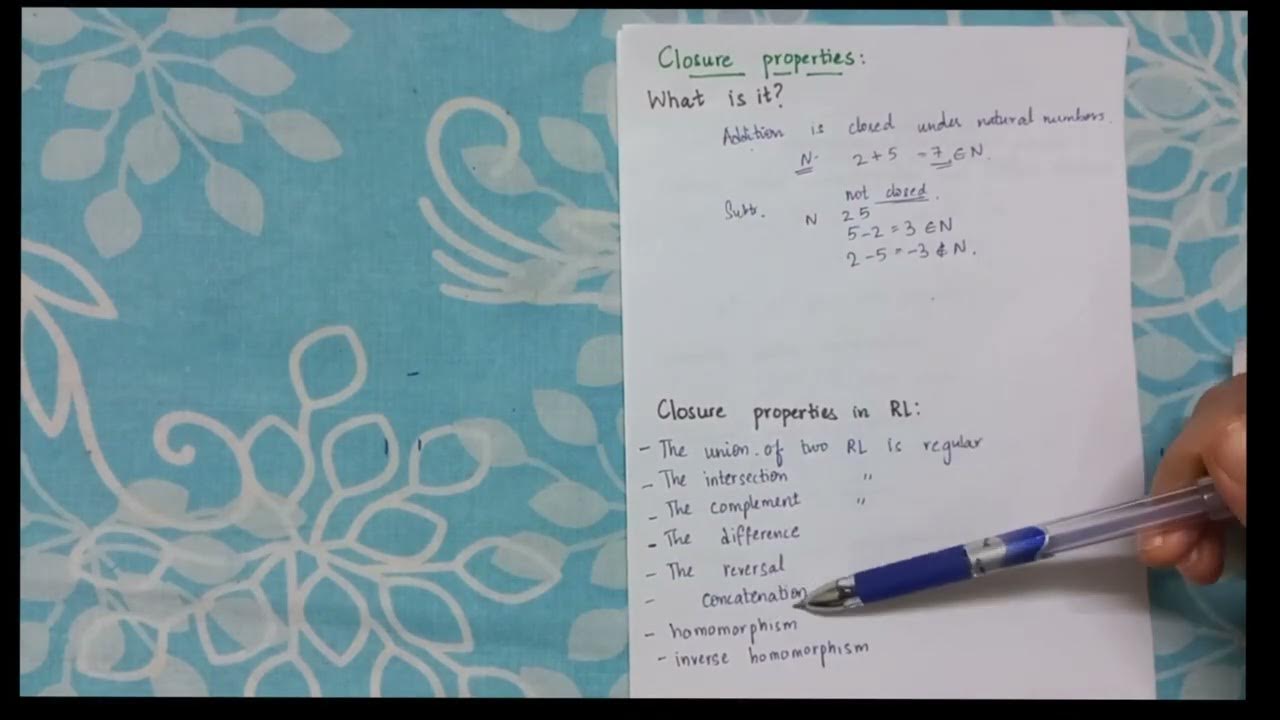 Closure properties:
What is it?
Addition is closed under natural numbers.
N. 2 + 5 = 7 ∈ N.
not closed.
Subtr. N 2 5
5 - 2 = 3 ∈ N
2 - 5 = -3 ∉ N.
Closure properties in RL:
- The union of two RL is regular
- The intersection "
- The complement "
- The difference
- The reversal
- concatenation
- homomorphism
- inverse homomorphism